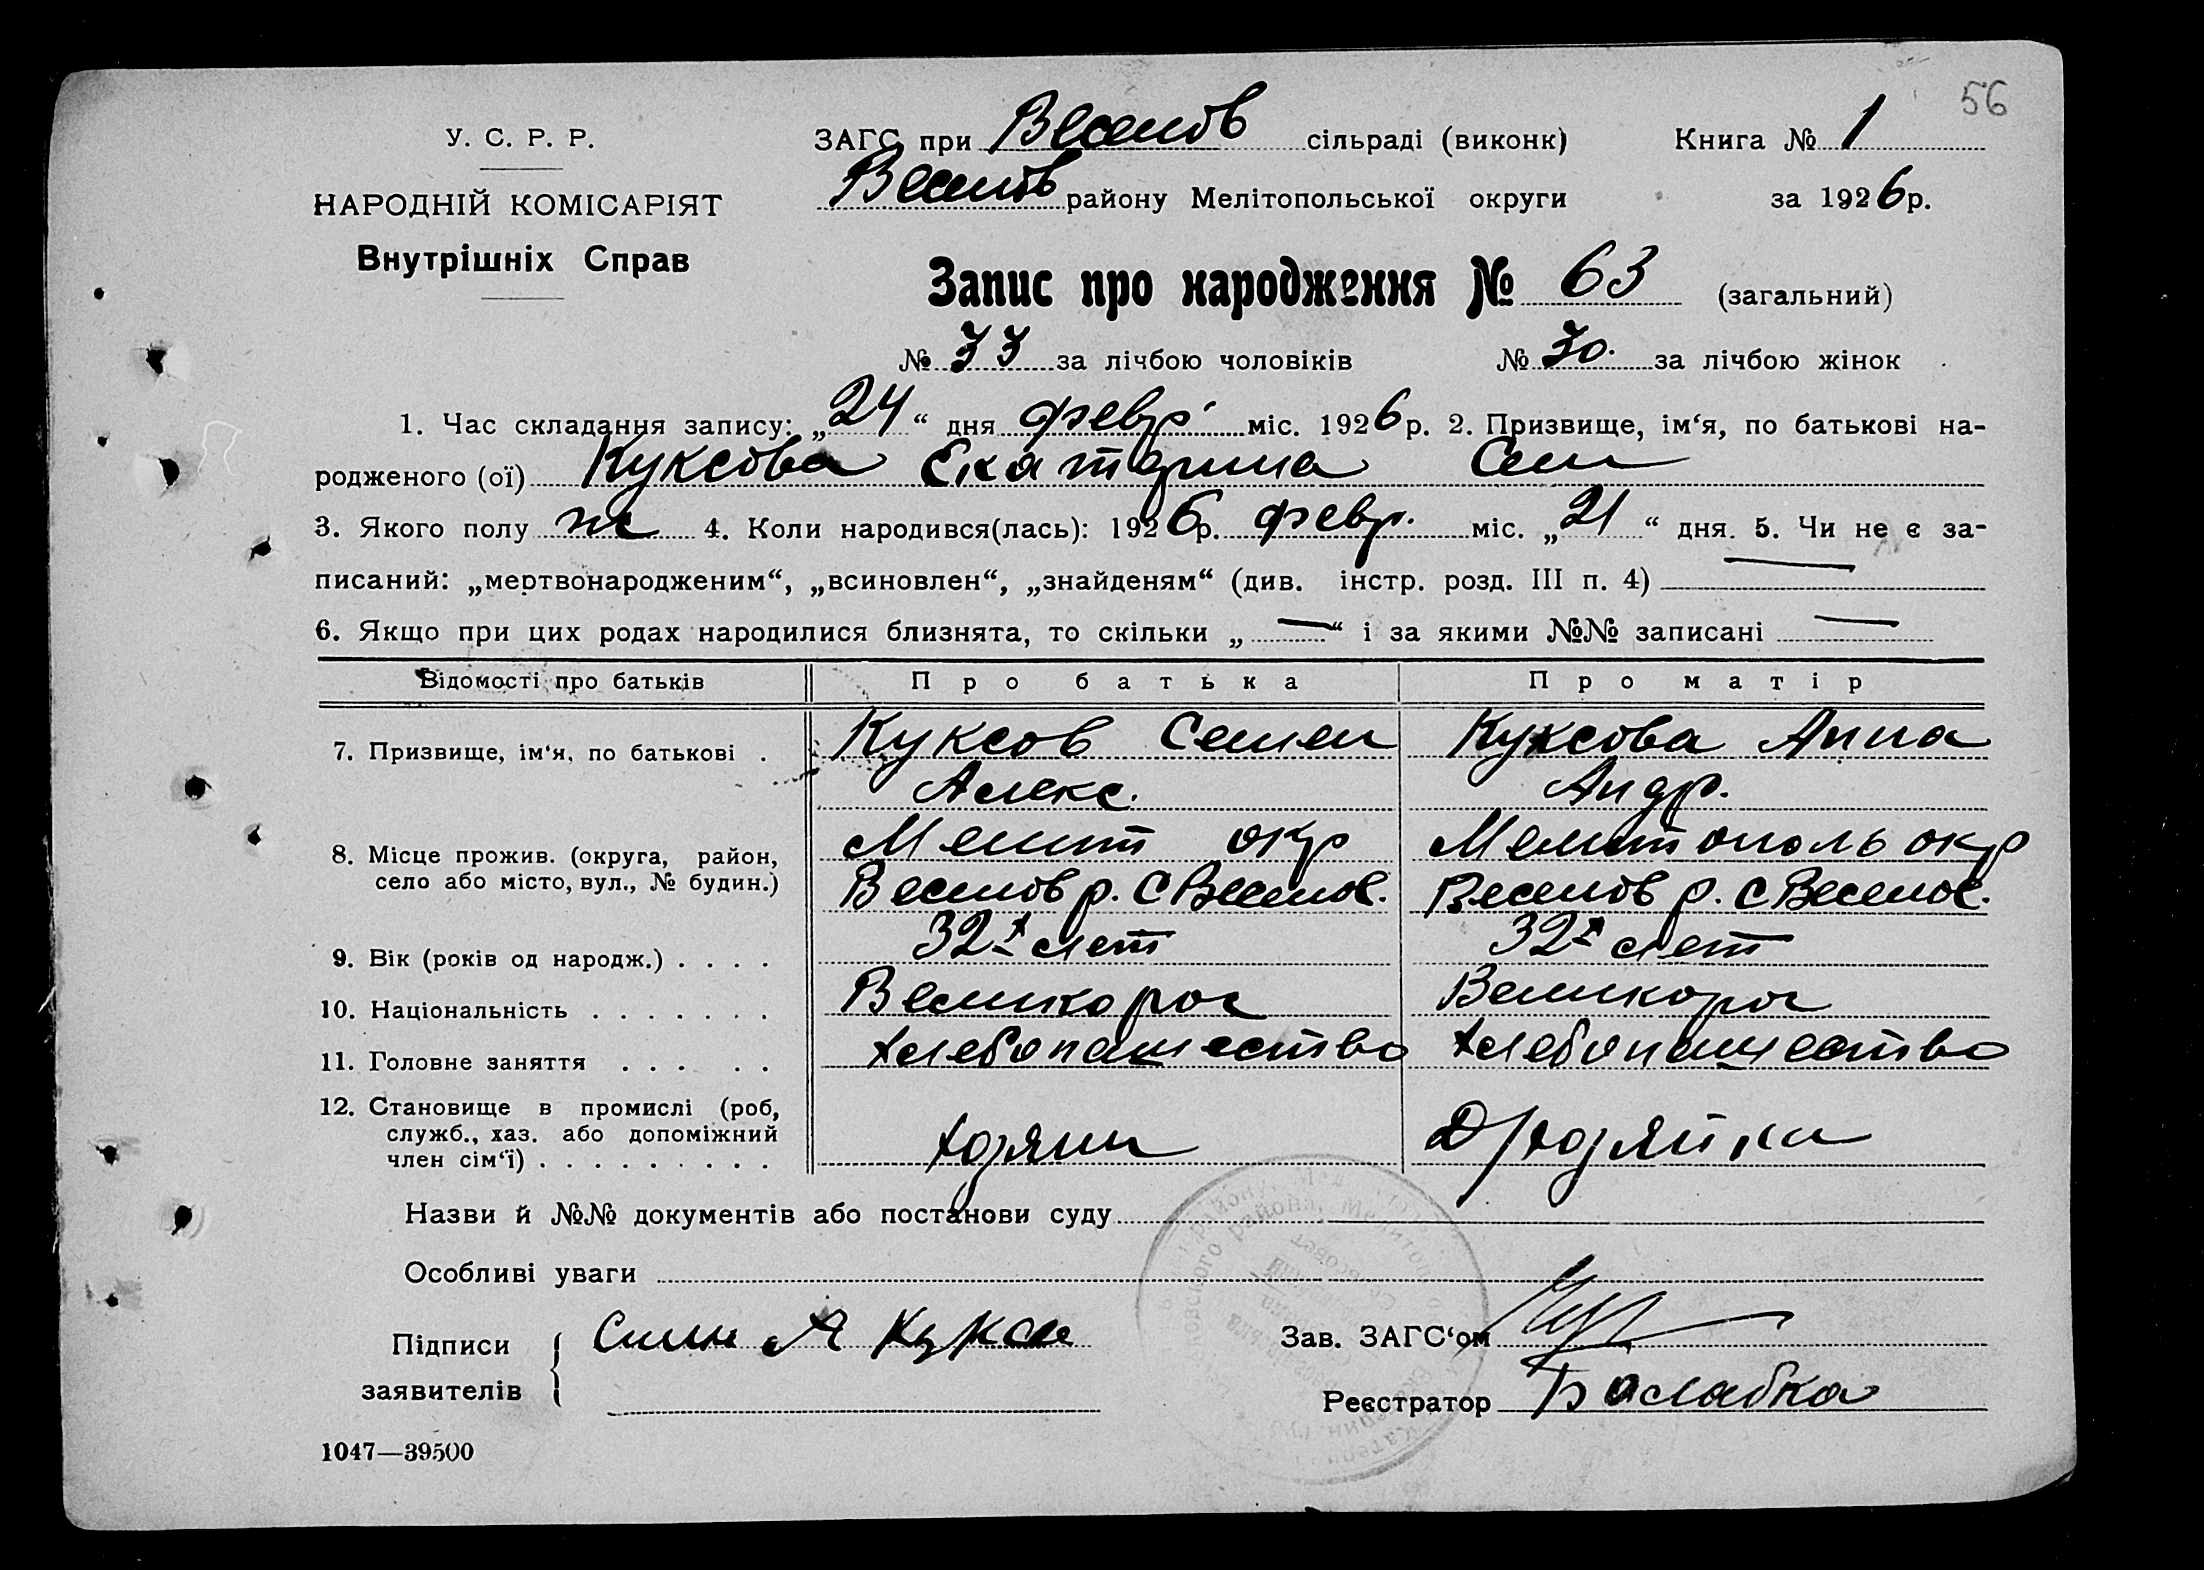 56
У. С. Р. Р.
ЗАГС при Веселов сільраді (виконк) Книга № 1
НАРОДНІЙ КОМІСАРІЯТ
Веселов району Мелітопольської округи за 1926 р.
Внутрішніх Справ
Запис про народження № 63 (загальний)
№ 33 за лічбою чоловіків № 30. за лічбою жінок
1. Час складання запису: „24“ дня февр міс. 1926 р. 2. Призвище, ім‘я, по батькові на-
родженого (ої) Куксова Екатерина Сем
3. Якого полу ж 4. Коли народився(лась): 1926 р. февр. міс. „21“ дня. 5. Чи не є за-
писаний: „мертвонародженим“, „всиновлен“, „знайденям“ (див. інстр. розд. III п. 4) —
6. Якщо при цих родах народилися близнята, то скільки „—“ і за якими №№ записані —
Відомості про батьків Про батька Про матір
7. Призвище, ім‘я, по батькові . Куксов Семен Куксова Анна
Алекс. Андр.
8. Місце прожив. (округа, район, Мелит окр Мелитополь окр
село або місто, вул., № будин.) Веселов р. С Веселов. Веселов р. С Веселов.
9. Вік (років од народж.) . . . . 32х лет 32х лет
10. Національність . . . . . . . Великорос Великорос
11. Головне заняття . . . . . Хлебопашество Хлебопашество
12. Становище в промислі (роб,
служб., хаз. або допоміжний
член сім‘ї) . . . . . . . . . Хозяин Д/Хозяйка
Назви й №№ документів або постанови суду
Особливі уваги
Підписи
заявителів
Зав. ЗАГС‘ом
Реєстратор
1047—39500